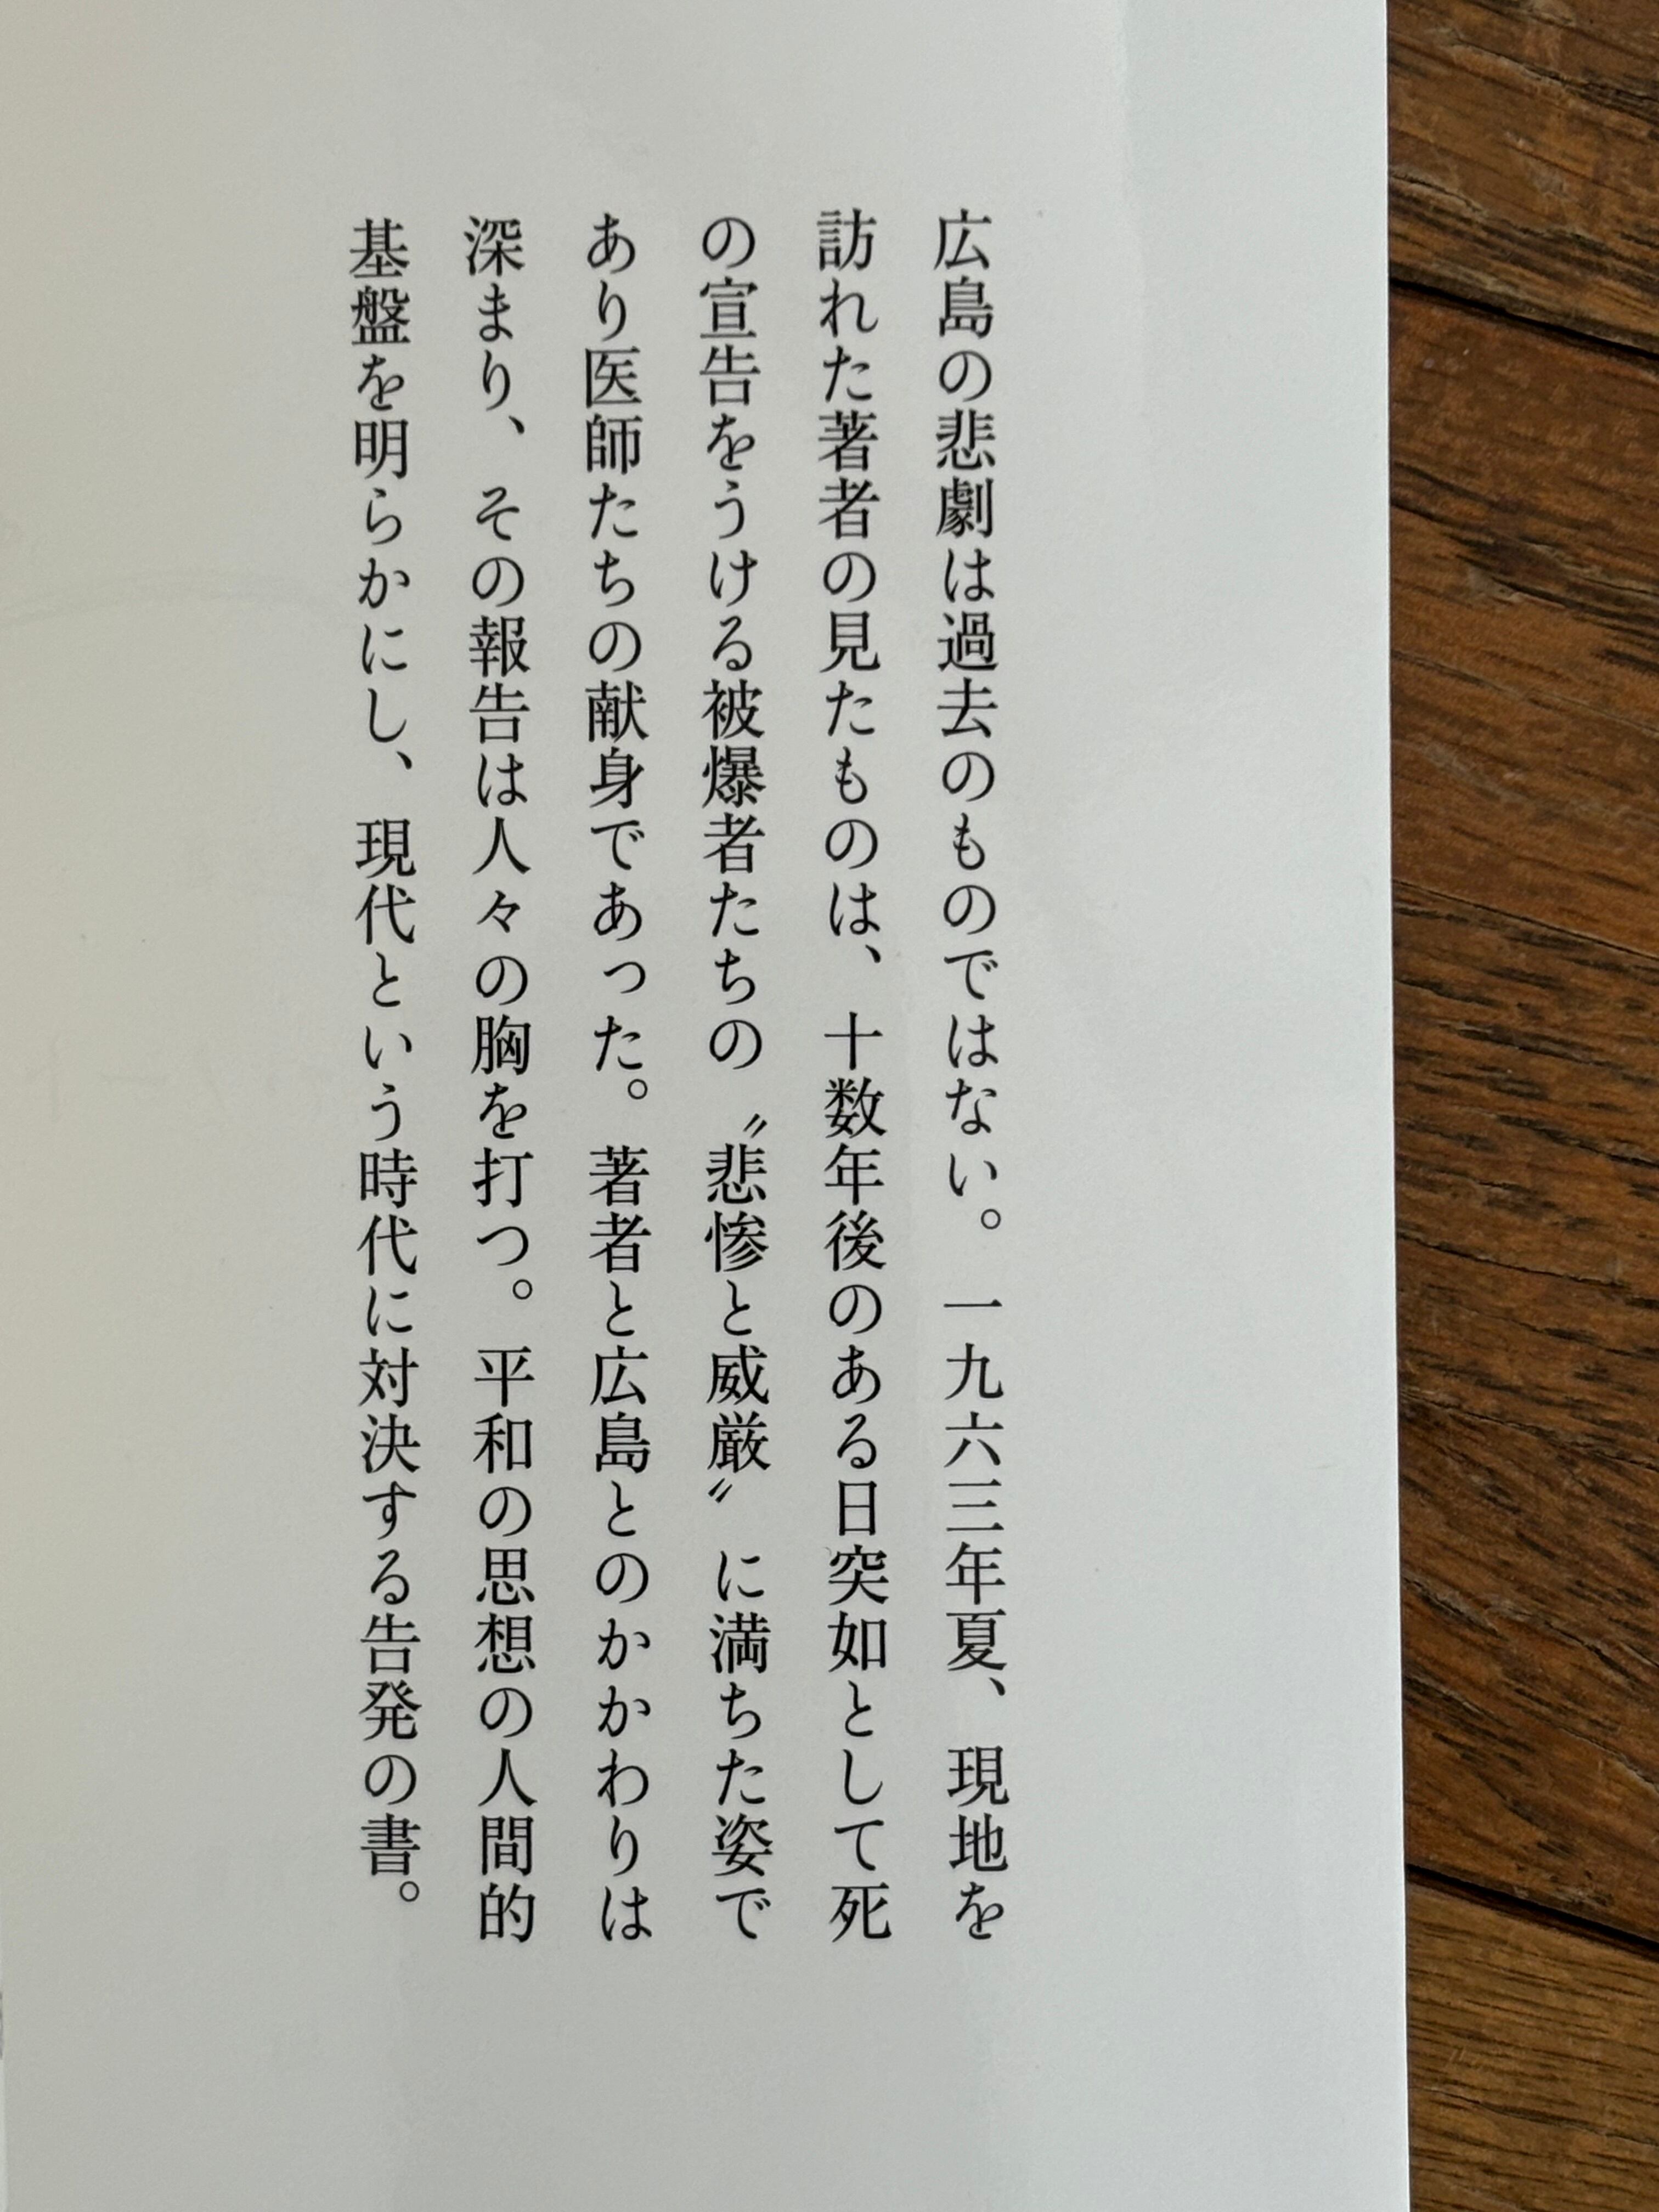 広島の悲劇は過去のものではない。一九六三年夏、現地を
訪れた著者の見たものは、十数年後のある日突如として死
の宣告をうける被爆者たちの〝悲惨と威厳〟に満ちた姿で
あり医師たちの献身であった。著者と広島とのかかわりは
深まり、その報告は人々の胸を打つ。平和の思想の人間的
基盤を明らかにし、現代という時代に対決する告発の書。